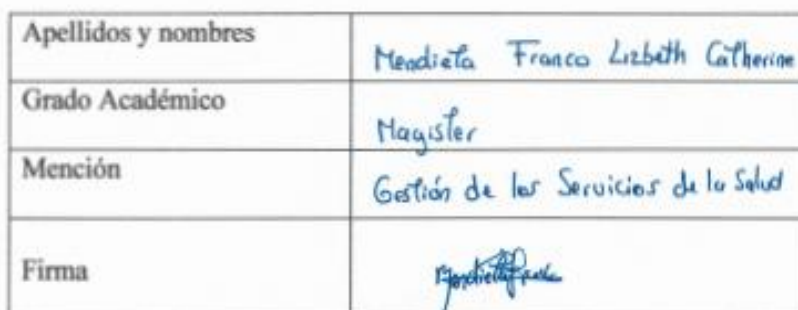 Apellidos y nombres
Mendieta Franco Lizbeth Catherine
Grado Académico
Magister
Mención
Gestión de los Servicios de la Salud
Firma